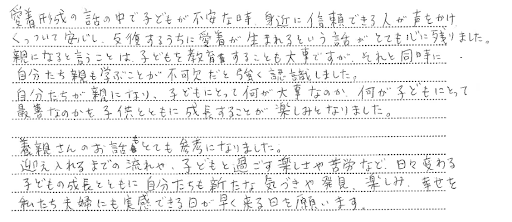 愛着形成の話の中で子どもが不安な時、身近に信頼できる人が声をかけ
くっついて安心し、反復するうちに愛着が生まれるという話がとても心に残りました。
親になると言うことは、子どもを教育することも大事ですが、それと同時に、
自分たち親も学ぶことが不可欠だと強く認識しました。
自分たちが親になり、子どもにとって何が大事なのか、何が子どもにとって
最善なのかを子供とともに成長することが楽しみとなりました。
養親さんのお話もとても参考になりました。
迎え入れるまでの流れや、子どもと過ごす楽しさや苦労など、日々変わる
子どもの成長とともに自分たちも新たな気づきや発見、楽しみ、幸せを
私たち夫婦にも実感できる日が早く来る日を願います。